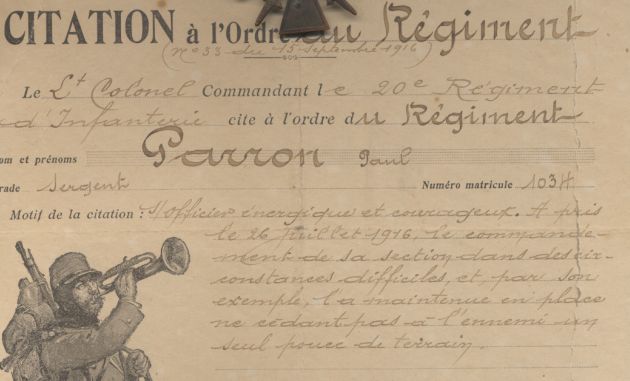 CITATION à l'Ordre du Régiment
(N° 33 du 15 septembre 1916)
Le Lt Colonel Commandant le 20e Régiment
d'Infanterie cite à l'ordre du Régiment
om et prénoms Parron Paul
rade Sergent Numéro matricule 1034
Motif de la citation : S/officier énergique et courageux. A pris
le 26 Juillet 1916, le commande-
ment de sa section dans des cir-
constances difficiles, et, par son
exemple, l'a maintenue en place
ne cédant pas à l'ennemi un
seul pouce de terrain.